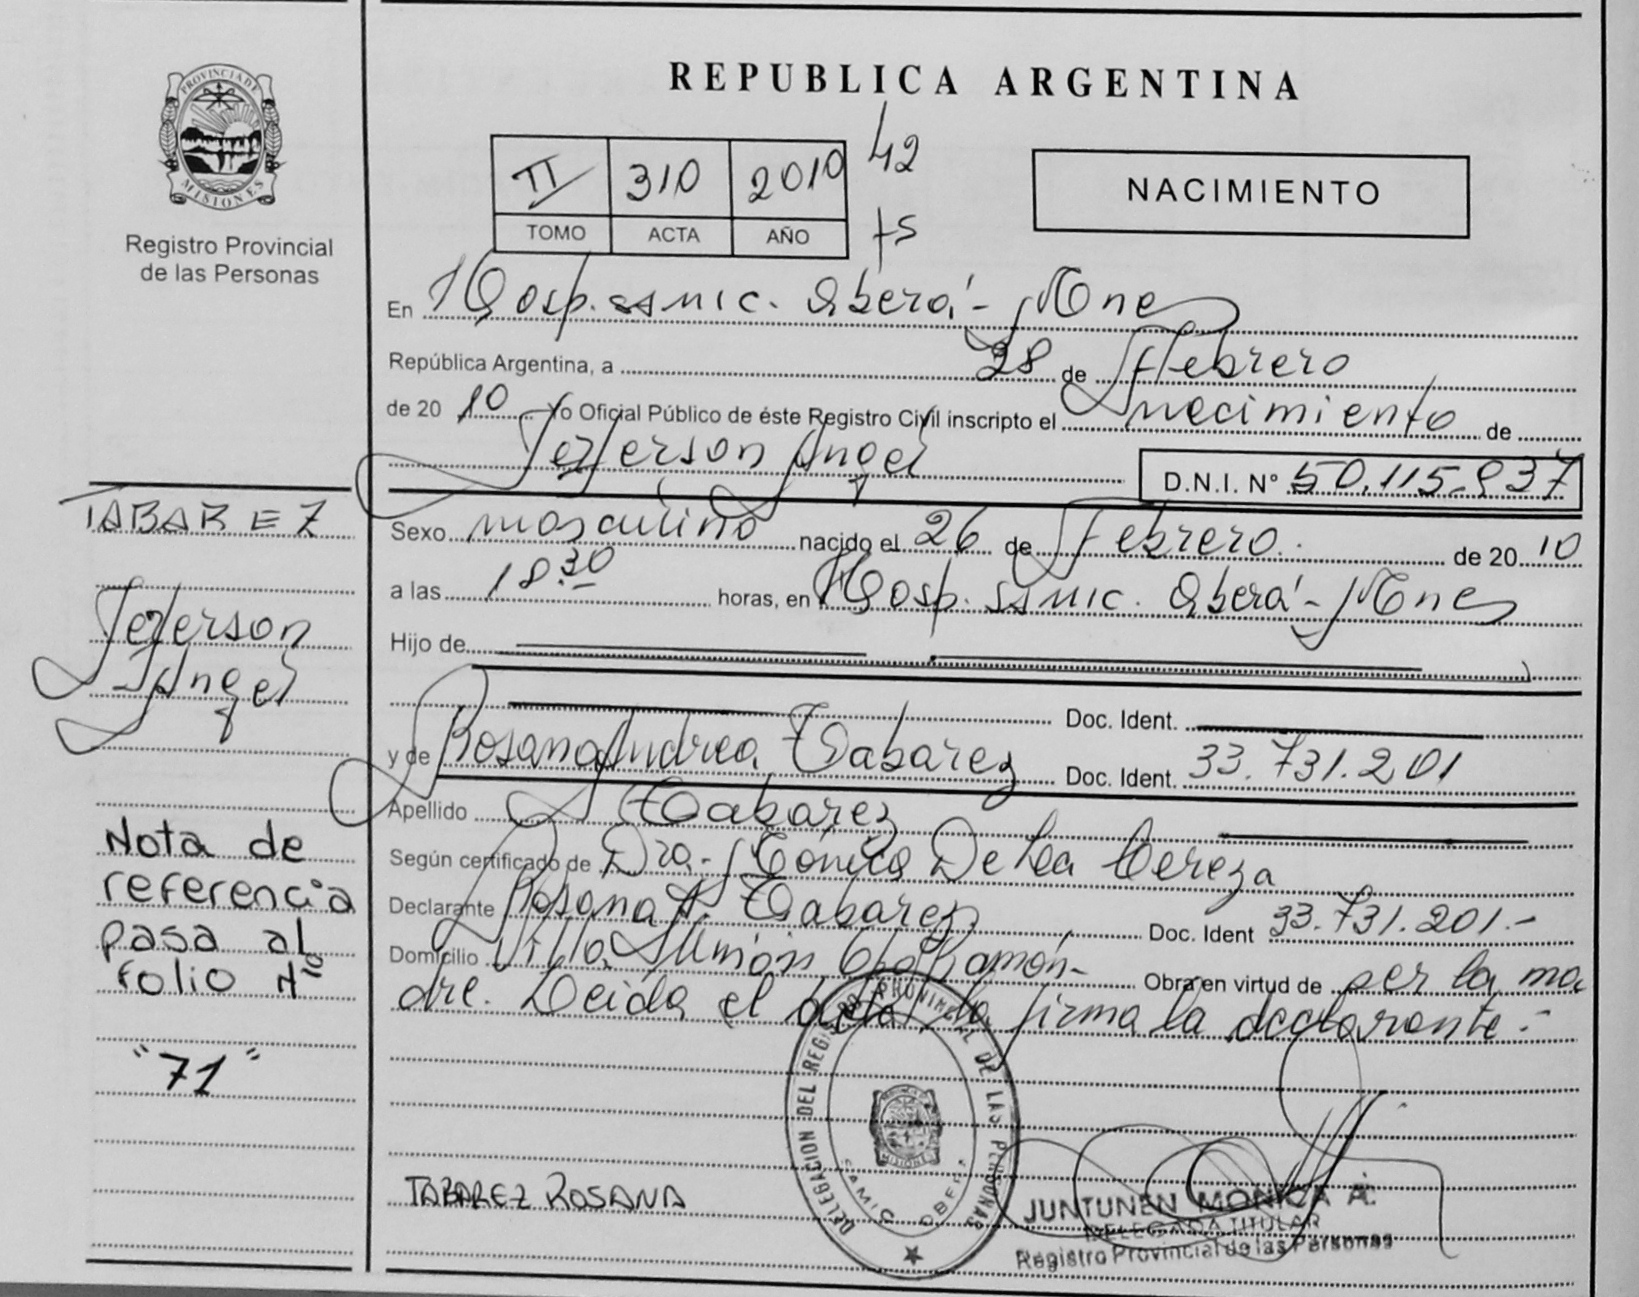 PROVINCIA DE
MISIONES
Registro Provincial
de las Personas
REPUBLICA ARGENTINA
II 310 2010 42
TOMO ACTA AÑO
NACIMIENTO
En Hosp. SAMIC. Oberá - Mnes
República Argentina, a 28 de Febrero
de 20 10 Yo Oficial Público de éste Registro Civil inscripto el nacimiento de
Jeferson Angel
D.N.I. N° 50.115.937
TABAREZ
Sexo masculino nacido el 26 de Febrero de 20 10
a las 18.30 horas, en Hosp. SAMIC. Oberá - Mnes
Jeferson
Angel
Hijo de
Doc. Ident.
y de Rosana Andrea Tabarez Doc. Ident. 33.731.201
Apellido Tabarez
Nota de
referencia
pasa al
folio Nº
"71"
Según certificado de Dra. Mónica De La Cereza
Declarante Rosana A. Tabarez Doc. Ident 33.731.201.-
Domicilio Villa Ramón - Obra en virtud de ser la ma
dre. Leida el acta, la firma la declarante.-
TABAREZ ROSANA
DELEGACION DEL REGISTRO PROVINCIAL DE LAS PERSONAS
SAMIC OBERA
MISIONES
JUNTUNEN MONICA A.
DELEGADA TITULAR
Registro Provincial de las Personas